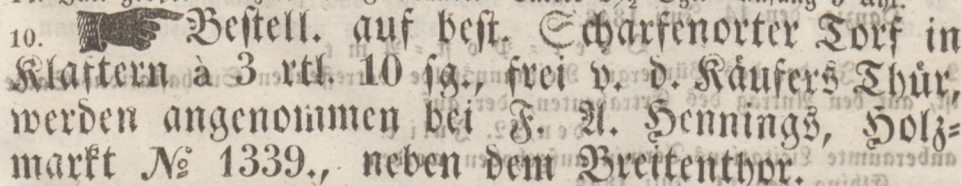 10. ☛ Bestell. auf best. Scharfenorter Torf in
Klaftern à 3 rtl. 10 sg., frei v. d. Käufers Thür,
werden angenommen bei F. A. Hennings, Holz-
markt № 1339., neben dem Breitenthor.